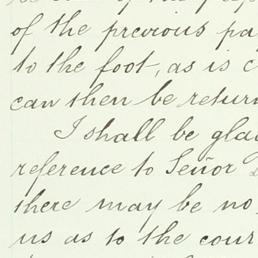 of the previous pa
to the foot, as is c
can then be return
I shall be glad
reference to Señor
there may be no
us as to the cour